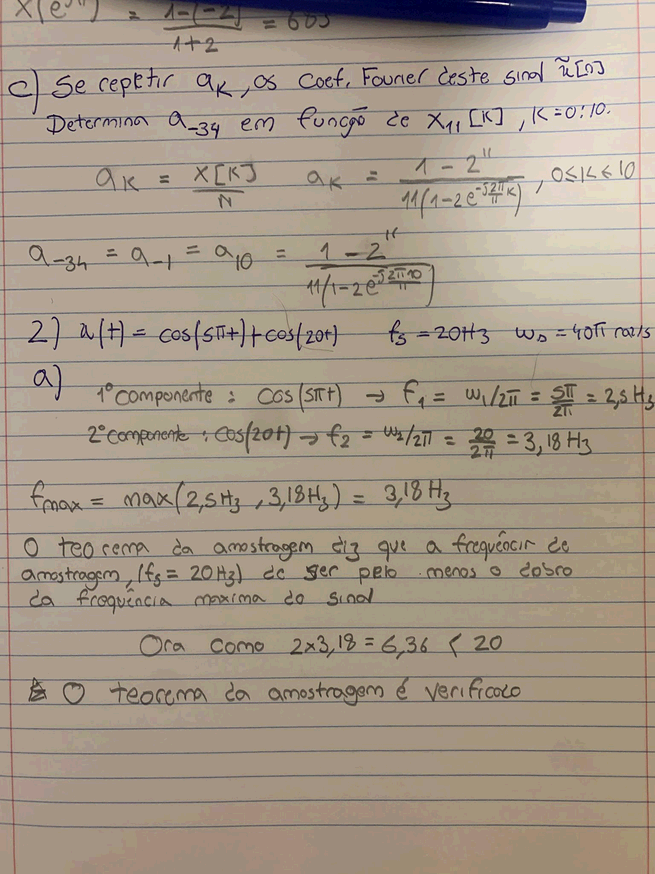 X(e^jπ) = \frac{1-(-2)}{1+2} = 683
c) Se repetir a_K, os coef. Fourier deste sinal x̃[n]
Determina a_{-34} em função de X_{11}[K], K=0:10.
a_K = \frac{X[K]}{N}   a_K = \frac{1-2^{11}}{11(1-2e^{-j\frac{2π}{11}K})}, 0≤K≤10
a_{-34} = a_{-1} = a_{10} = \frac{1-2^{11}}{11(1-2e^{-j\frac{2π10}{11}})}
2) x(t) = cos(5πt)+cos(20t)   f_s = 20Hz   w_s = 40π rad/s
a)
1º componente : cos(5πt) → f_1 = w_1/2π = \frac{5π}{2π} = 2,5Hz
2º componente : cos(20t) → f_2 = w_2/2π = \frac{20}{2π} = 3,18Hz
f_{max} = max(2,5Hz, 3,18Hz) = 3,18Hz
O teorema da amostragem diz que a frequência de
amostragem, (f_s = 20Hz) de ser pelo menos o dobro
da frequência maxima do sinal
Ora como 2x3,18 = 6,36 < 20
O teorema da amostragem é verificado